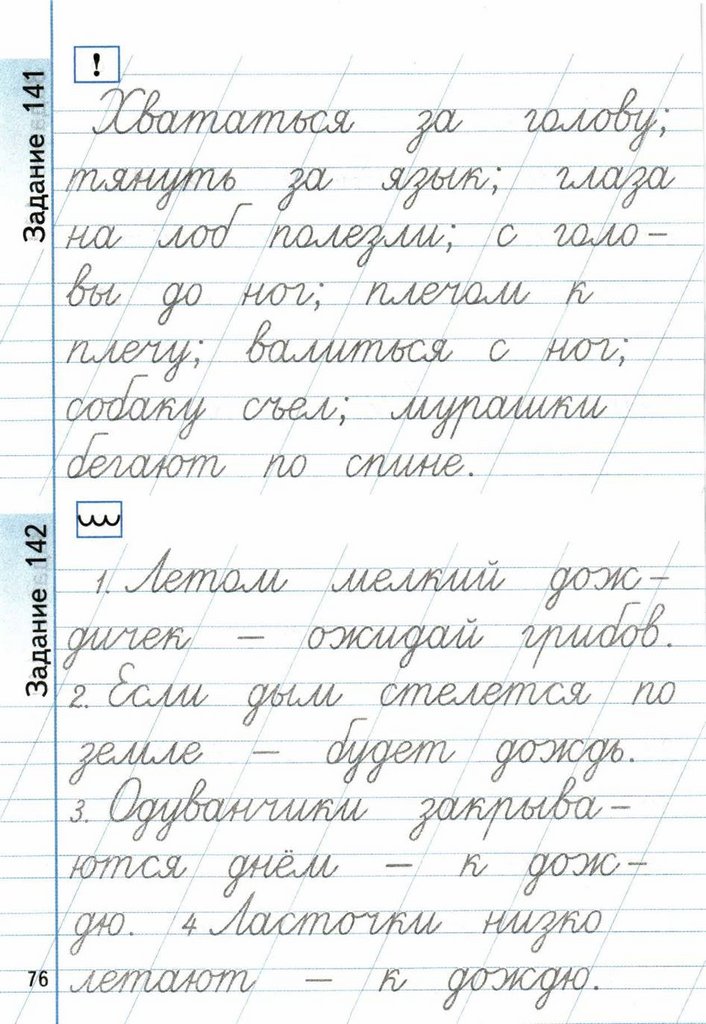 !
Задание 141
Хвататься за голову;
тянуть за язык; глаза
на лоб полезли; с голо-
вы до ног; плечом к
плечу; валиться с ног;
собаку съел; мурашки
бегают по спине.
Задание 142
1. Летом мелкий дож-
дичек — ожидай грибов.
2. Если дым стелется по
земле — будет дождь.
3. Одуванчики закрыва-
ются днём — к дож-
дю. 4 Ласточки низко
летают — к дождю.
76